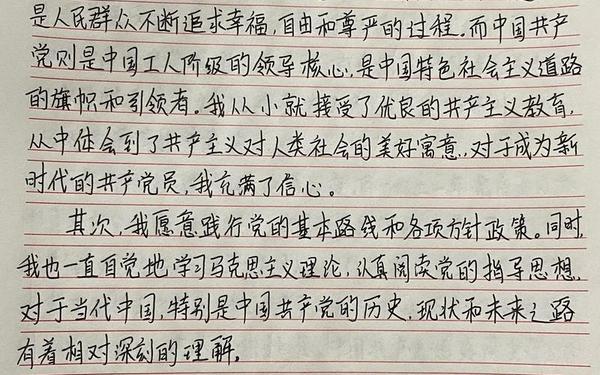 是人民群众不断追求幸福，自由和尊严的过程。而中国共产
党则是中国工人阶级的领导核心，是中国特色社会主义道路
的旗帜和引领者。我从小就接受了优良的共产主义教育，
从中体会到了共产主义对人类社会的美好寓意，对于成为新
时代的共产党员，我充满了信心。
其次，我愿意践行党的基本路线和各项方针政策。同时，
我也一直自觉地学习马克思主义理论，认真阅读党的指导思想。
对于当代中国，特别是中国共产党的历史、现状和未来之路
有着相对深刻的理解。